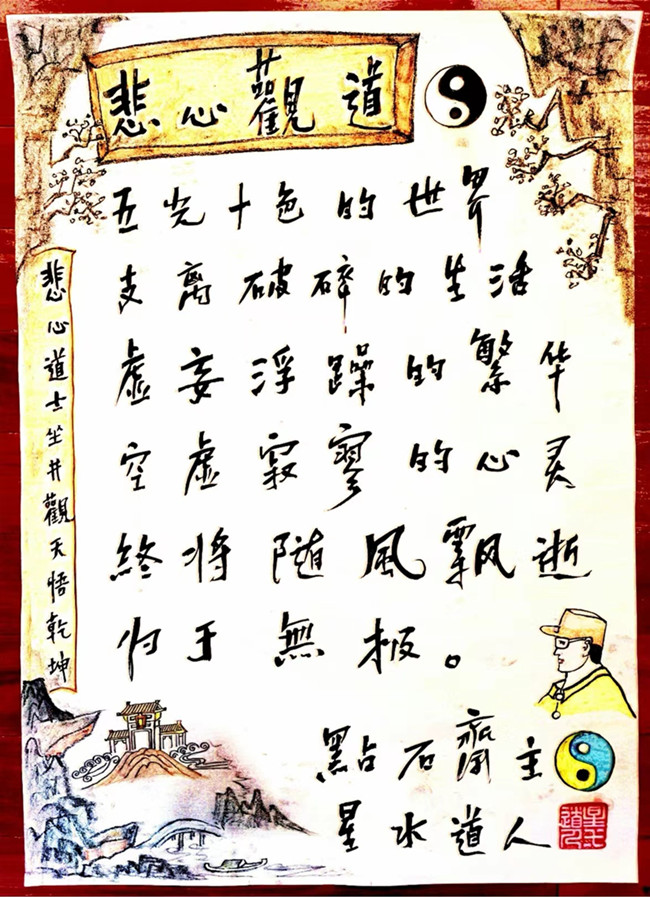 悲心觀道
五光十色的世界
支离破碎的生活
虛妄浮躁的繁华
空虛寂寥的心灵
終将随風飘逝
归于無极。
悲心道士坐井觀天悟乾坤
點石齋主
星水道人